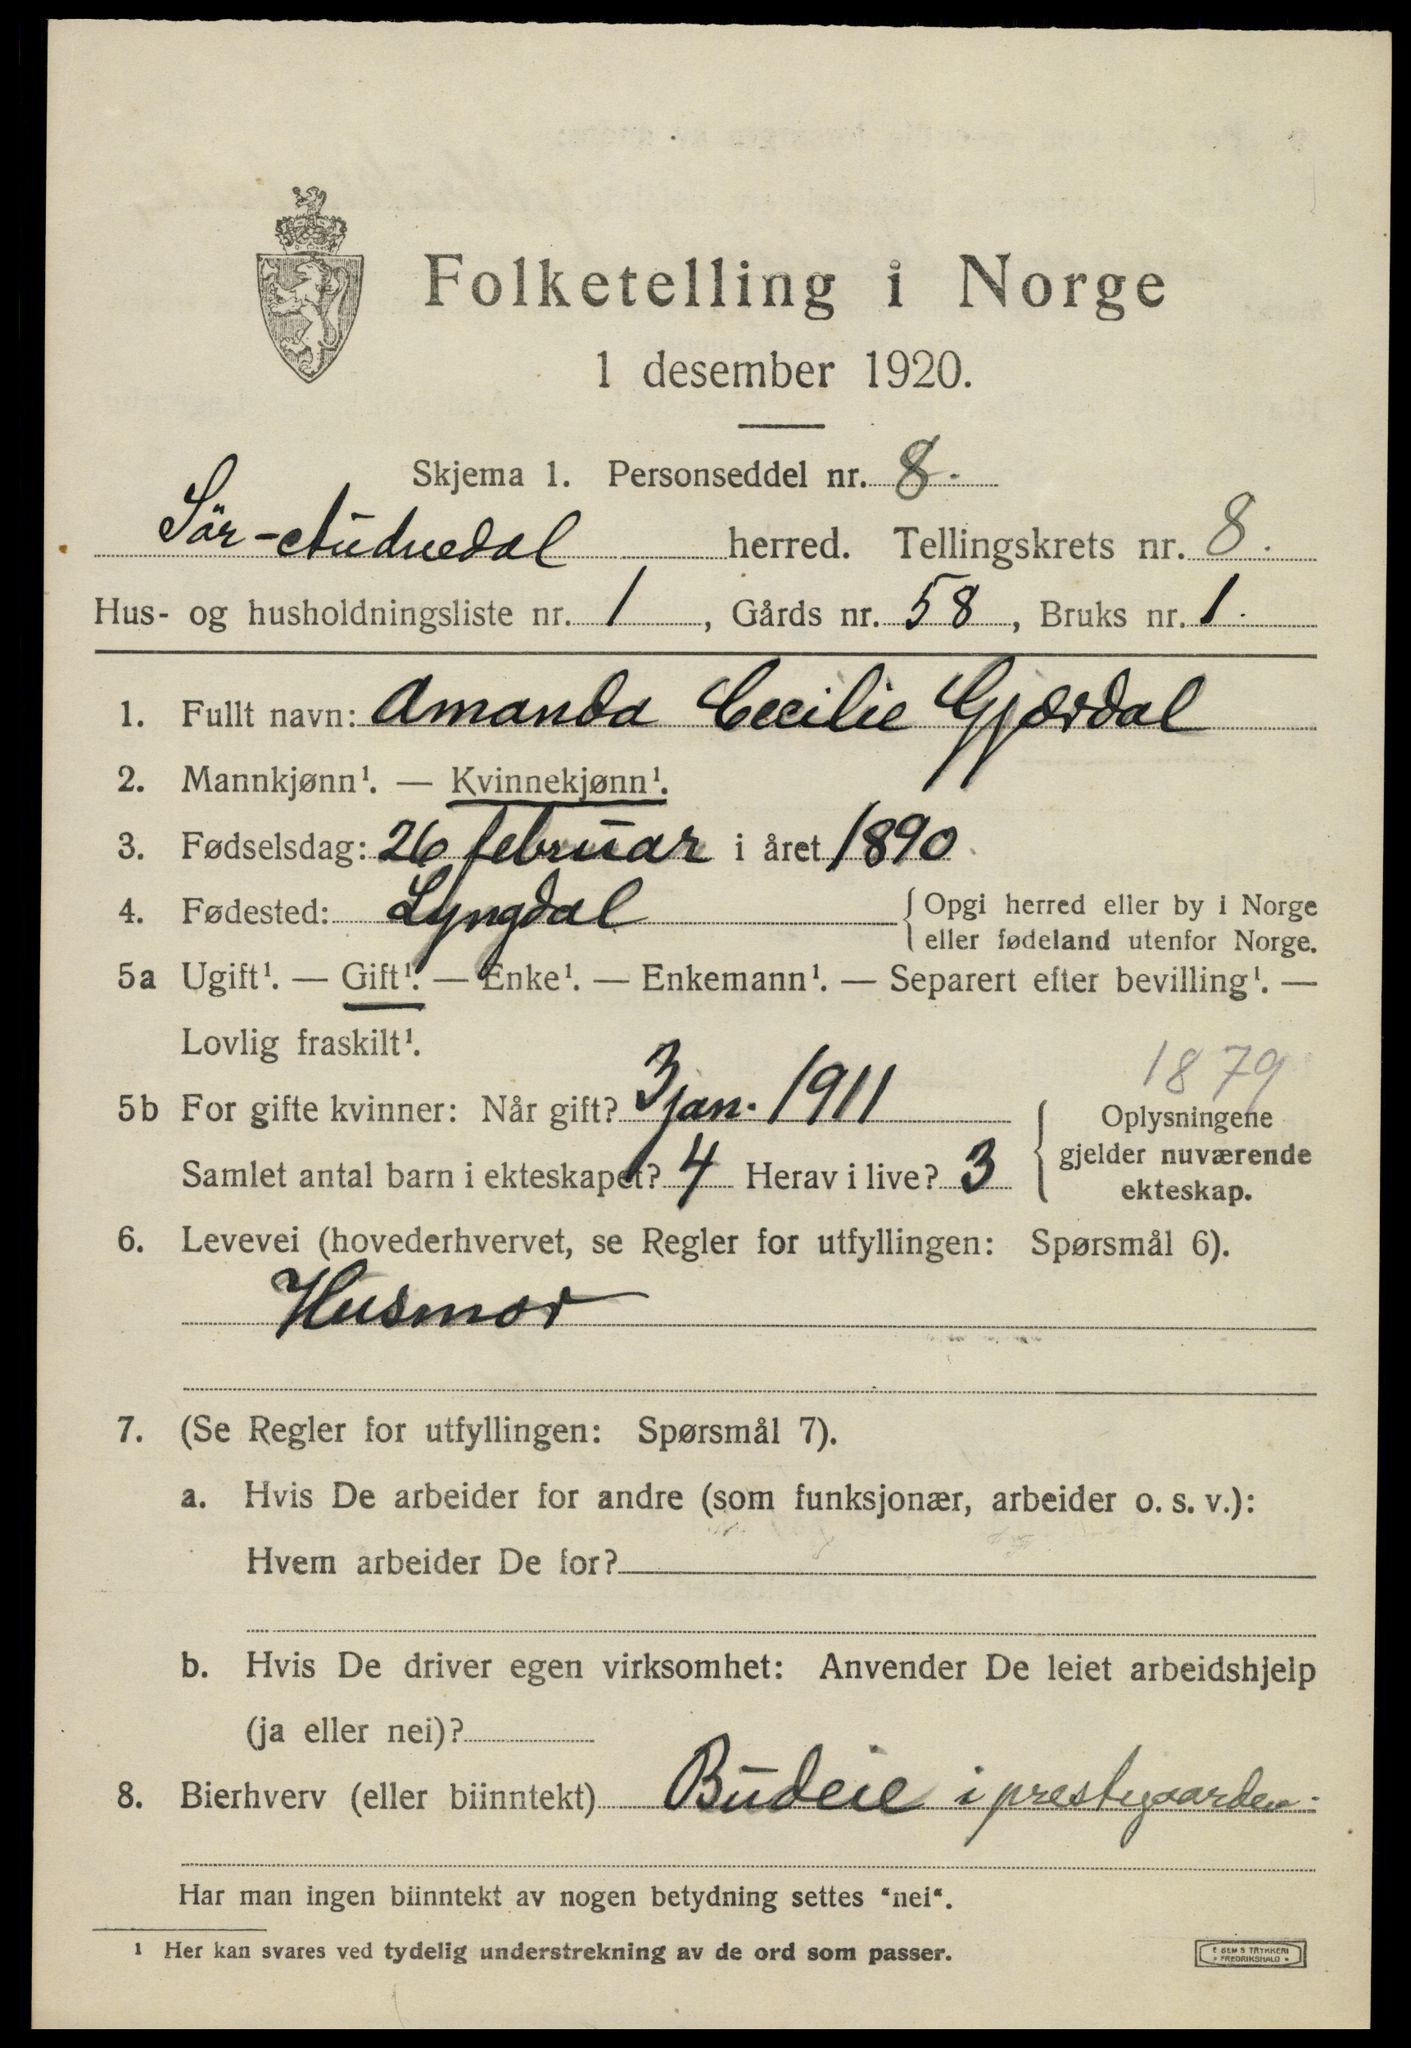 Folketelling i Norge
1 desember 1920.
Skjema 1. Personseddel nr. 8.
Sör-Audnedal herred. Tellingskrets nr. 8.
Hus- og husholdningsliste nr. 1, Gårds nr. 58, Bruks nr. 1.
1. Fullt navn: Amanda Cecilie Gjærdal
2. Mannkjønn¹. — Kvinnekjønn¹.
3. Fødselsdag: 26 februar i året 1890
4. Fødested: Lyngdal {Opgi herred eller by i Norge
eller fødeland utenfor Norge.
5a Ugift¹. — Gift¹. — Enke¹. — Enkemann¹. — Separert efter bevilling¹. —
Lovlig fraskilt¹.
1879
5b For gifte kvinner: Når gift? 3 jan. 1911 {Oplysningene
gjelder nuværende
Samlet antal barn i ekteskapet? 4 Herav i live? 3
ekteskap.
6. Levevei (hovederhvervet, se Regler for utfyllingen: Spørsmål 6).
Husmor
7. (Se Regler for utfyllingen: Spørsmål 7).
a. Hvis De arbeider for andre (som funksjonær, arbeider o. s. v.):
Hvem arbeider De for?
b. Hvis De driver egen virksomhet: Anvender De leiet arbeidshjelp
(ja eller nei)?
8. Bierhverv (eller biinntekt) Budeie i prestegaarden.
Har man ingen biinntekt av nogen betydning settes "nei".
¹ Her kan svares ved tydelig understrekning av de ord som passer.
SEM'S TRYKKERI
FREDRIKSHALD